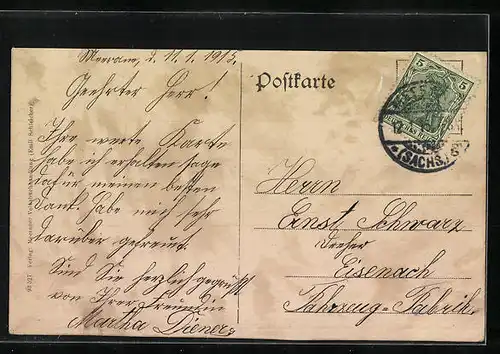 Meerane, d. 11. 1. 1915.
Geehrter Herr!
Ihre werte Karte
habe ich erhalten sage
dafür meinen besten
Dank. Habe mich sehr
darüber gefreut.
Sind Sie herzlich gegrüßt
von Ihrer Freundin
Martha Diener.
Postkarte
5 5
(SACHS.)
Herrn
Ernst Schwarz
Eisenach
Fahrzeug-Fabrik.